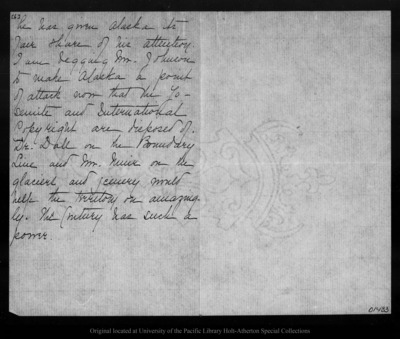 he has given Alaska its
fair share of his attention.
I am begging Mr. Johnson
to make Alaska a point
of attack now that the Yo-
semite and International
Copyright are disposed of.
Dr. Dall on the Boundary
Line and Mr. Muir on the
glaciers and scenery would
help the territory on amazing-
ly. The Century has such a
power.
01433
Original located at University of the Pacific Library Holt-Atherton Special Collections